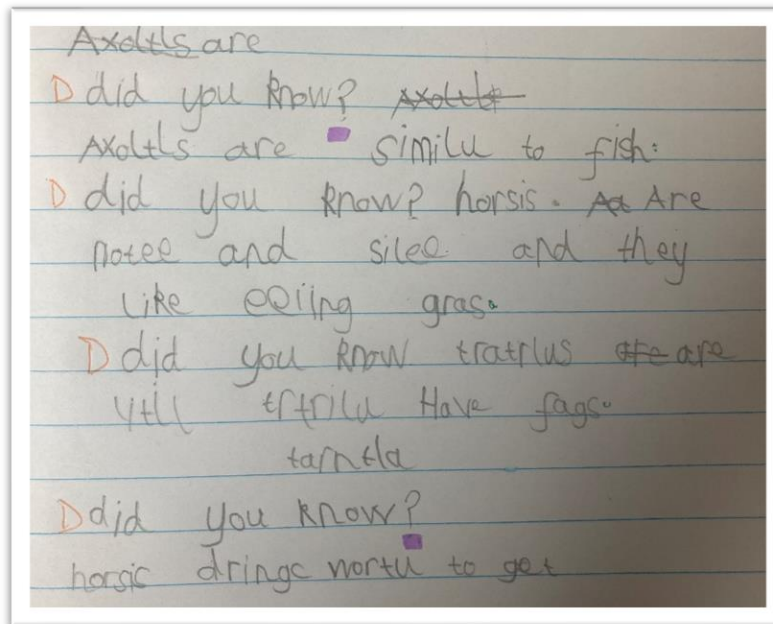 Axoltls are
D did you know? Axoltls
Axoltls are similu to fish.
D did you know? horsis. Aa Are
notee and silee. and they
like eeiing gras.
D did you know tratrlus are are
vill trtrilu Have fags.
tarntla
D did you know?
horsis drings wortu to get